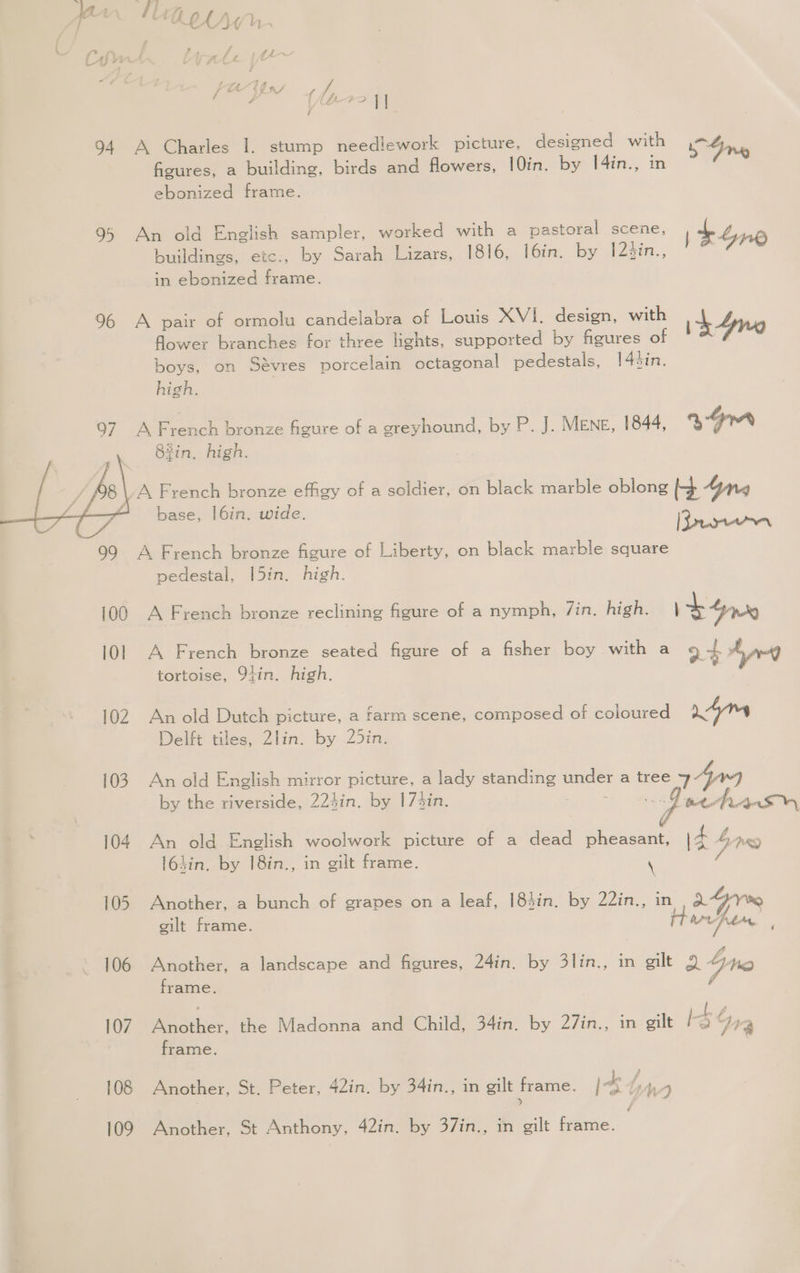 11
94 A Charles I. stump needlework picture, designed with 5 Gns
figures, a building, birds and flowers, 10in. by 14in., in
ebonized frame.
95 An old English sampler, worked with a pastoral scene,
buildings, etc., by Sarah Lizars, 1816, 16in. by 12½in.,
in ebonized frame.
96 A pair of ormolu candelabra of Louis XVI. design, with
flower branches for three lights, supported by figures of
boys, on Sèvres porcelain octagonal pedestals, 14½in.
high.
97 A French bronze figure of a greyhound, by P. J. MENE, 1844,
8¾in. high.
98 A French bronze effigy of a soldier, on black marble oblong
base, 16in. wide.
Brown
99 A French bronze figure of Liberty, on black marble square
pedestal, 15in. high.
100 A French bronze reclining figure of a nymph, 7in. high.
101 A French bronze seated figure of a fisher boy with a
tortoise, 9½in. high.
102 An old Dutch picture, a farm scene, composed of coloured 2 Gns
Delft tiles, 21in. by 25in.
103 An old English mirror picture, a lady standing under a tree 7 Gns
by the riverside, 22½in. by 17½in.
104 An old English woolwork picture of a dead pheasant,
16½in. by 18in., in gilt frame.
105 Another, a bunch of grapes on a leaf, 18½in. by 22in., in 2 Gns
gilt frame.
106 Another, a landscape and figures, 24in. by 31in., in gilt 2 Gns
frame.
107 Another, the Madonna and Child, 34in. by 27in., in gilt
frame.
108 Another, St. Peter, 42in. by 34in., in gilt frame.
109 Another, St Anthony, 42in. by 37in., in gilt frame.